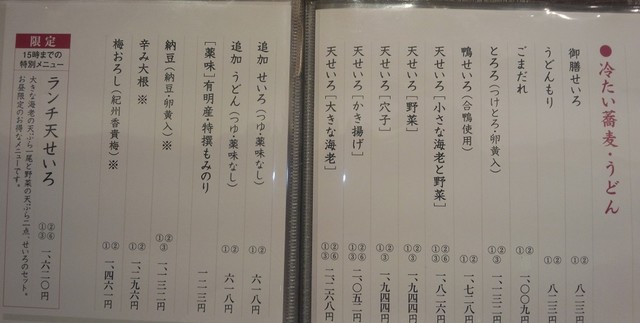 ●冷たい蕎麦・うどん
御膳せいろ ①② 八二三円
うどんもり ①② 八二三円
ごまだれ ①② 一、〇〇九円
とろろ(つけとろ・卵黄入) ①②③ 一、一三二円
鴨せいろ(合鴨使用) ①② 一、七二八円
天せいろ[小さな海老と野菜] ①②③⑥ 一、八二六円
天せいろ[野菜] ①②③ 一、九四四円
天せいろ[穴子] ①②③ 一、九四四円
天せいろ[かき揚げ] ①②③⑥ 二、〇五二円
天せいろ[大きな海老] ①②③⑥ 二、二六八円
追加 せいろ(つゆ・薬味なし) ①② 六一八円
追加 うどん(つゆ・薬味なし) ①② 六一八円
[薬味]有明産・特撰もみのり 一二三円
納豆(納豆・卵黄入)※ ①②③ 一、一三二円
辛み大根 ※ ①② 一、二九六円
梅おろし(紀州香貴梅)※ ①② 一、四六一円
限定
15時までの
特別メニュー
ランチ天せいろ
大きな海老の天ぷら一尾と野菜の天ぷら二点、せいろのセット。
お昼限定のお得なメニューです。
①②③⑥ 一、六二〇円